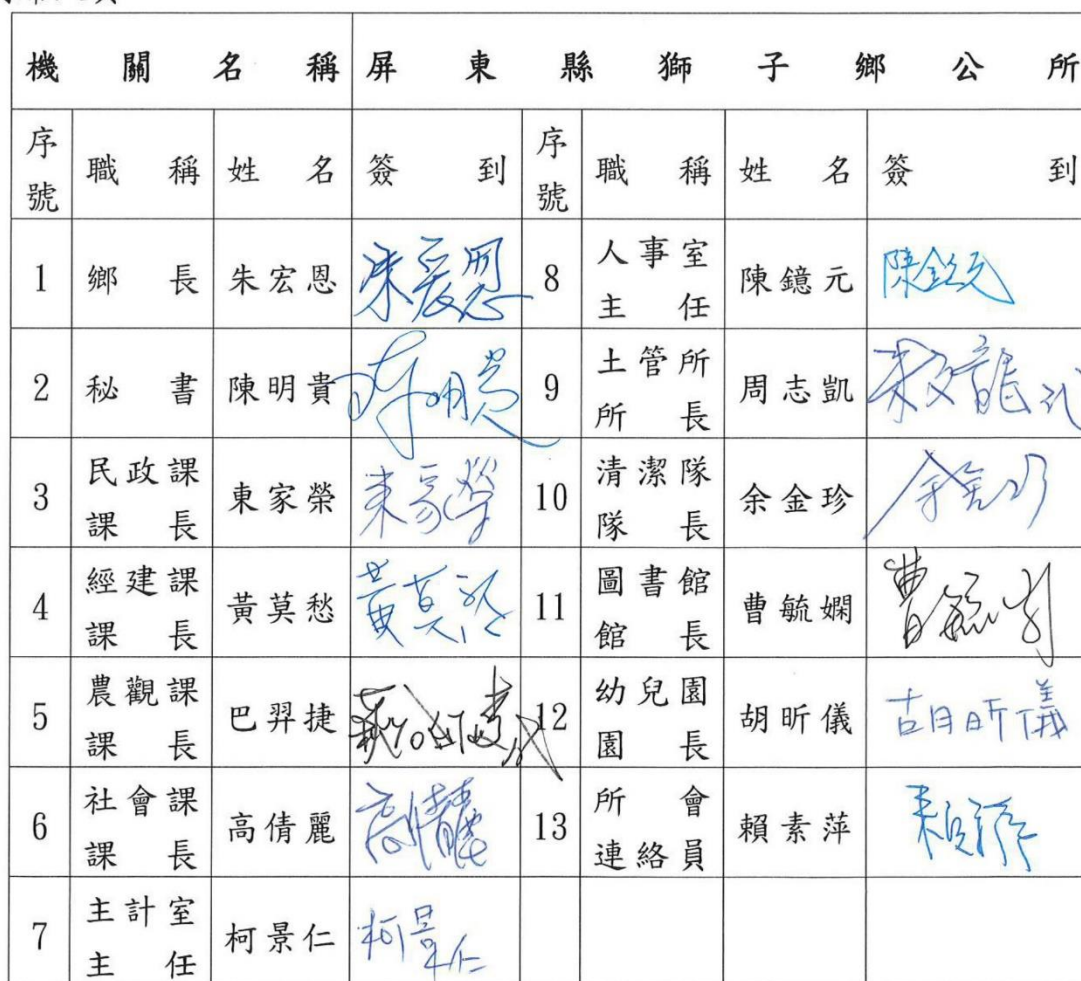 機關名稱 屏東縣獅子鄉公所
序號 職稱 姓名 簽到 序號 職稱 姓名 簽到
1 鄉長 朱宏恩 朱宏恩 8 人事室主任 陳鐿元 陳鐿元
2 秘書 陳明貴 陳明貴 9 土管所所長 周志凱 宋文龍代
3 民政課課長 東家榮 東家榮 10 清潔隊隊長 余金珍 余金珍
4 經建課課長 黃莫愁 黃莫愁 11 圖書館館長 曹毓嫻 曹毓嫻
5 農觀課課長 巴羿捷 12 幼兒園園長 胡昕儀 胡昕儀
6 社會課課長 高倩麗 高倩麗 13 所會連絡員 賴素萍 賴素萍
7 主計室主任 柯景仁 柯景仁